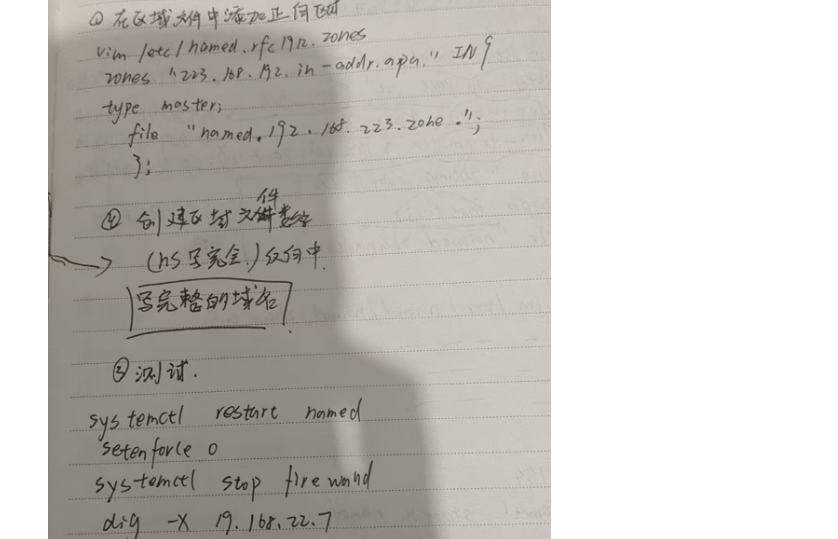 ① 在区域文件中添加正向区域
vim /etc/named.rfc1912.zones
zones "223.168.192.in-addr.apa." IN {
type master;
file "named.192.168.223.zone.";
};
② 创建区域文件
(ns写完全.) 反向中.
写完整的域名
③ 测试.
systemctl restart named
setenforce 0
systemctl stop firewalld
dig -x 19.168.22.7